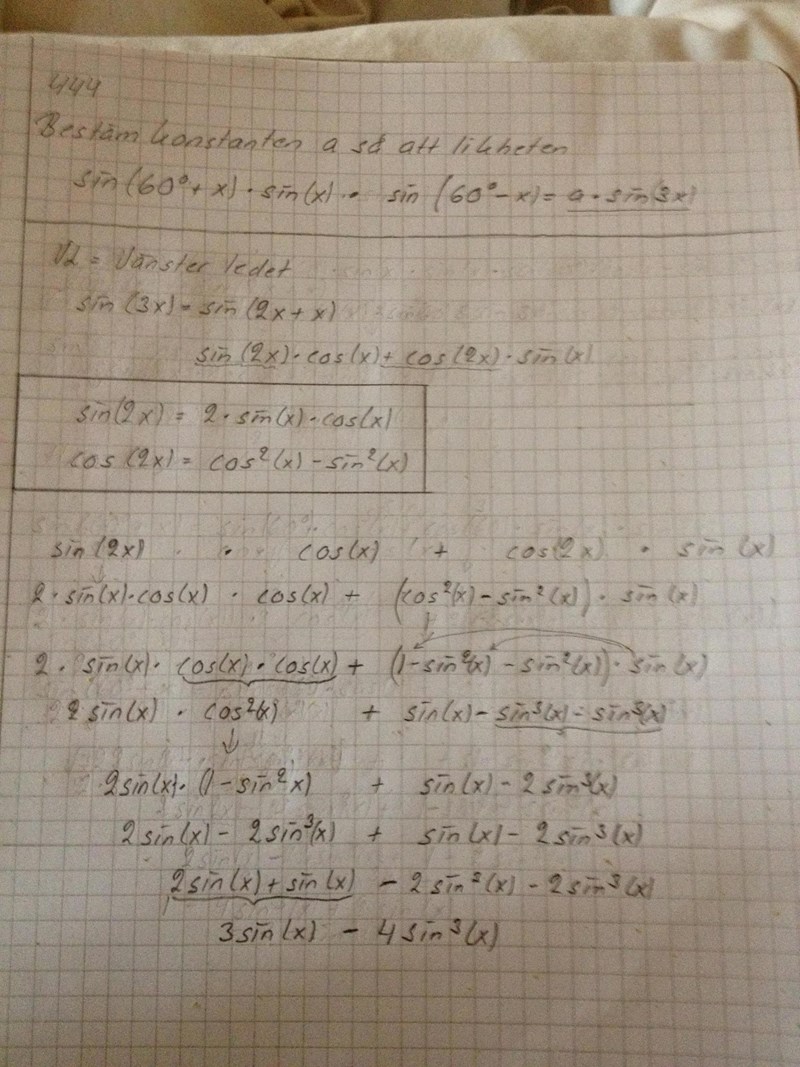 444
Bestäm konstanten a så att likheten
sin(60°+x)·sin(x)· sin(60°-x)= a·sin(3x)
VL = Vänster ledet
sin(3x)= sin(2x+x)
sin(2x)·cos(x)+cos(2x)·sin(x)
sin(2x) = 2·sin(x)·cos(x)
cos(2x) = cos²(x)-sin²(x)
sin(2x) · cos(x) + cos(2x) · sin(x)
2·sin(x)·cos(x) · cos(x) + (cos²(x)-sin²(x))·sin(x)
2· sin(x)·cos(x)·cos(x)+ (1-sin²(x)-sin²(x))·sin(x)
2sin(x) · cos²(x) + sin(x)-sin³(x)-sin³(x)
2sin(x)·(1-sin²x) + sin(x)-2sin³(x)
2sin(x)-2sin³(x) + sin(x)-2sin³(x)
2sin(x)+sin(x) -2sin³(x)-2sin³(x)
3sin(x) - 4sin³(x)